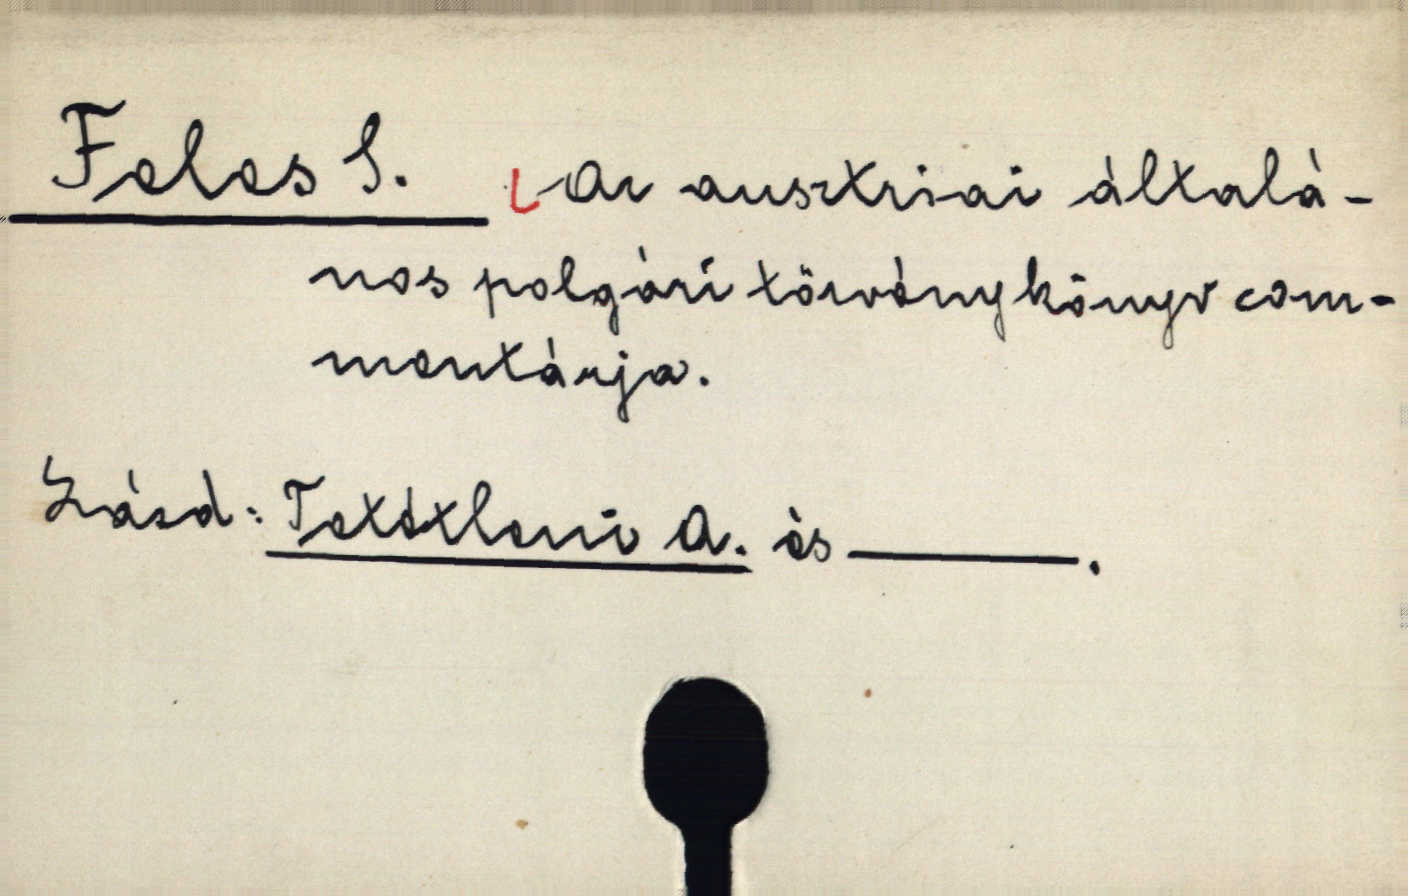 Feles S. Az ausztriai általá-
nos polgári törvénykönyv com-
mentárja.
Lásd: Tetétleni A. és ———.